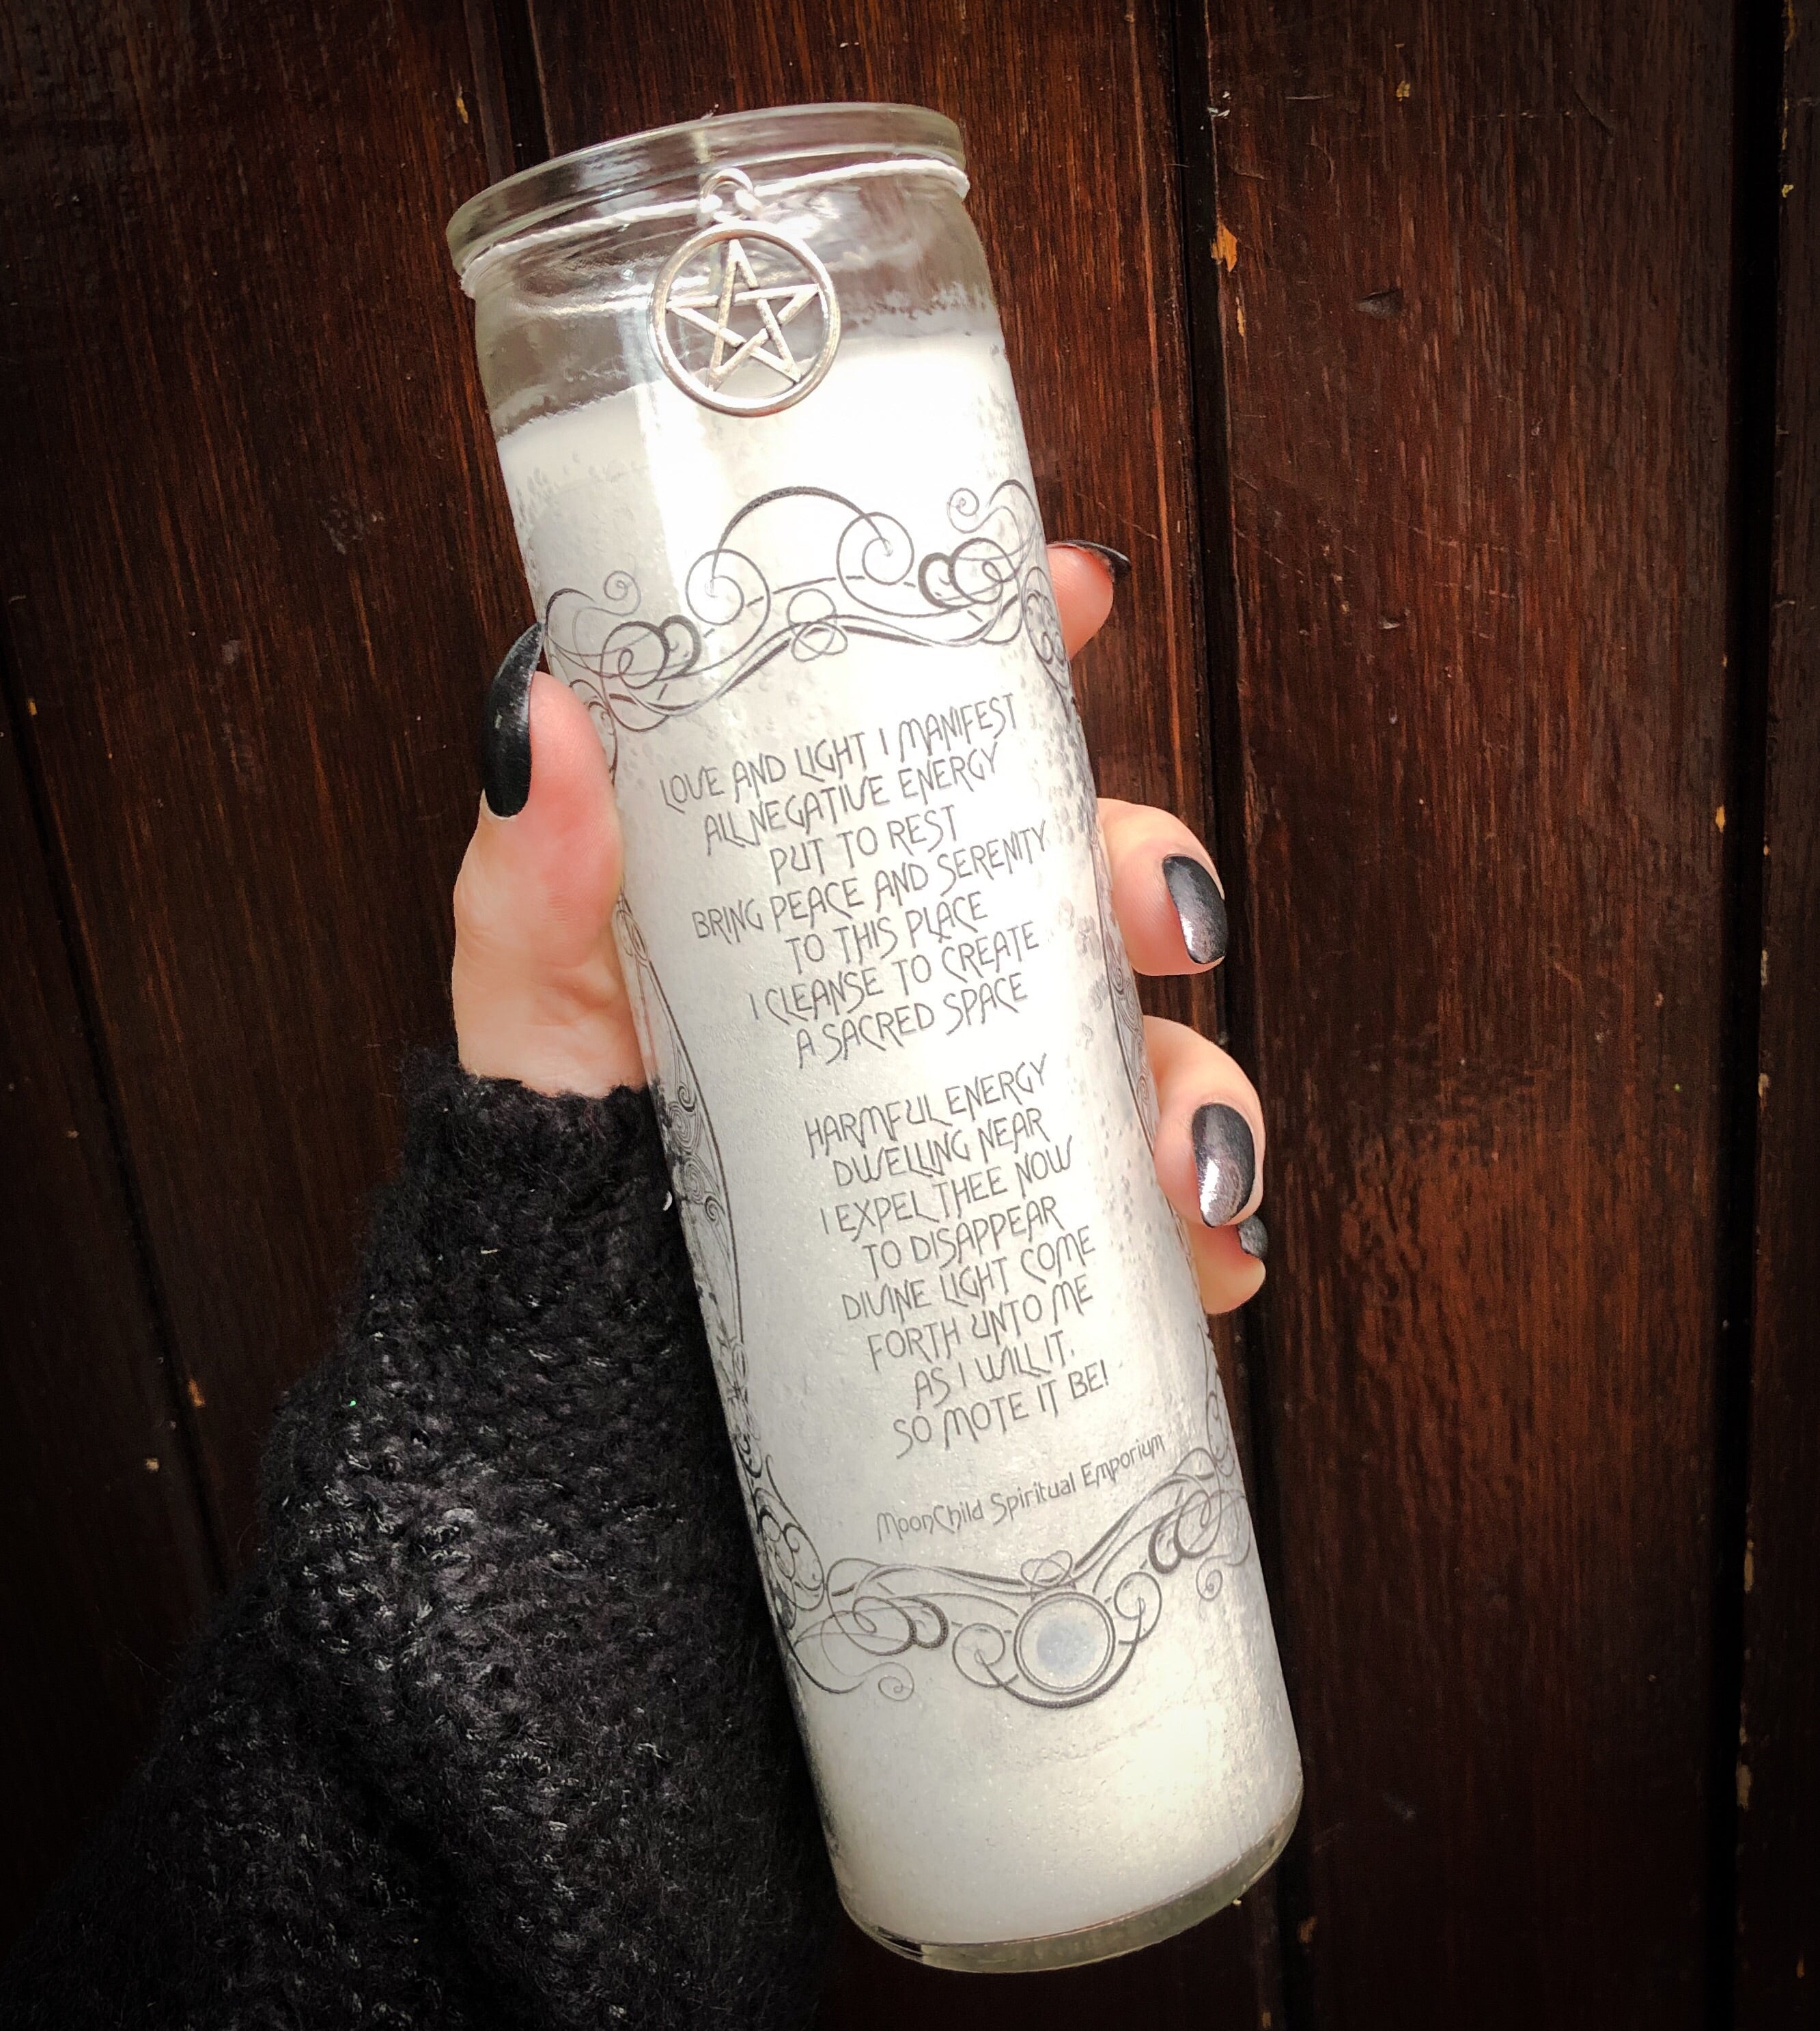 LOVE AND LIGHT I MANIFEST
ALL NEGATIVE ENERGY
PUT TO REST
BRING PEACE AND SERENITY
TO THIS PLACE
I CLEANSE TO CREATE
A SACRED SPACE
HARMFUL ENERGY
DWELLING NEAR
I EXPEL THEE NOW
TO DISAPPEAR
DIVINE LIGHT COME
FORTH UNTO ME
AS I WILL IT,
SO MOTE IT BE!
MoonChild Spiritual Emporium